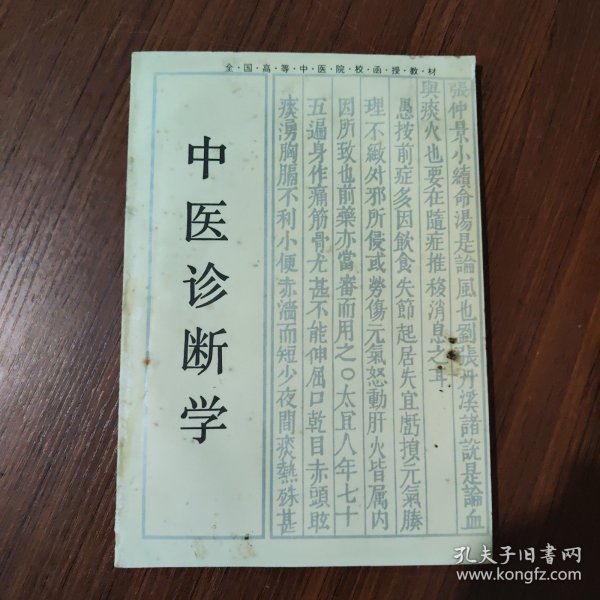 全·国·高·等·中·医·院·校·函·授·教·材
中医诊断学
張仲景小續命湯是論風也劉張丹溪諸説是論血
與痰火也要在隨症推移消息之耳
愚按前症多因飲食失節起居失宜虧損元氣腠
理不緻外邪所侵或勞傷元氣怒動肝火皆属内
因所致也前藥亦當審而用之○太宜人年七十
五遍身作痛筋骨尤甚不能伸屈口乾目赤頭眩
痰湧胸膈不利小便赤澀而短少夜間痰熱殊甚
孔夫子旧书网
www.kongfz.com